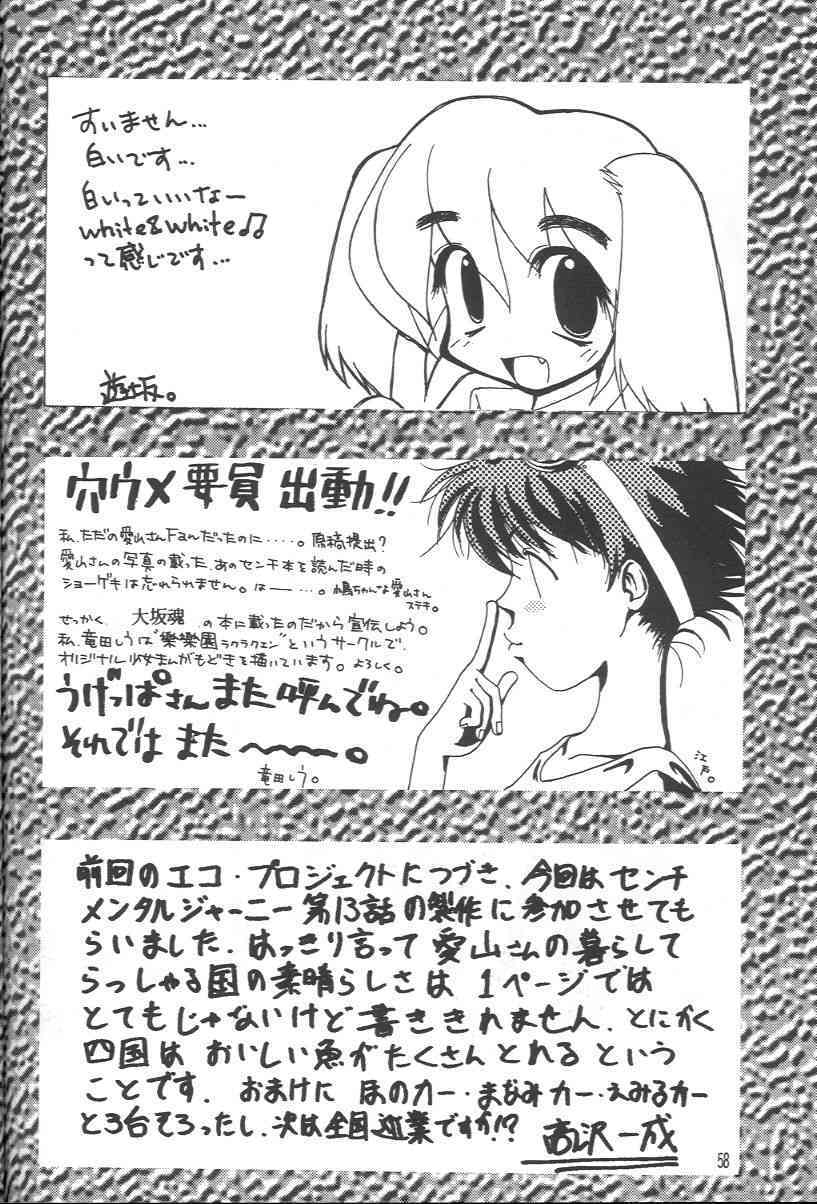 すいません…
白いです…
白いっていいなー
white&white♫
って感じです…
遊坂。
穴ウメ要員 出動!!
私、ただの愛山さんFanだったのに・・・・・。原稿提出?
愛山さんの写真の載った、あのセンチ本を読んだ時の
ショーゲキは忘れられません。はー…。嶋ちゃんな愛山さん
ステキ。
せっかく 大坂魂 の本に載ったのだから宣伝しよう。
私、竜田しうは"樂樂園ラクラクエン"というサークルで、
オリジナル少女まんがもどきを描いています。よろしく。
うげっぱさんまた呼んでね。
それでは また〜〜〜。
竜田しう。
江戸。
前回のエコ・プロジェクトにつづき、今回はセンチ
メンタルジャーニー第13話の製作に参加させても
らいました。はっきり言って愛山さんの暮らして
らっしゃる国の素晴らしさは1ページでは
とてもじゃないけど書ききれません。とにかく
四国は おいしい魚がたくさんとれる という
ことです。おまけに ほのカー・まなみカー・えみるカー
と3台そろったし、次は全国巡業ですか!?
高沢一成
58